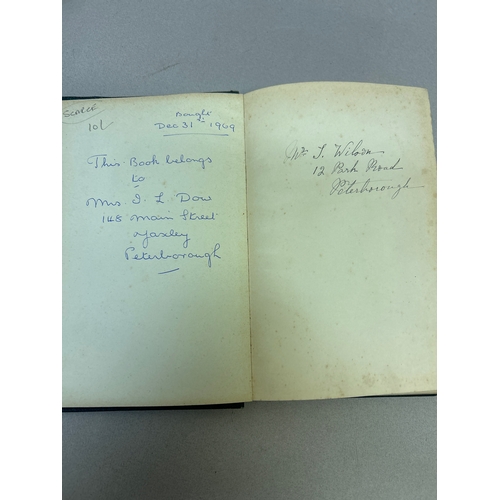 Scarce
10/
Bought
Dec 31st 1969
This Book belongs
to
Mrs I. L Dow
148 Main Street
Yaxley
Peterborough
Mr J. Wilson
12 Park Road
Peterborough